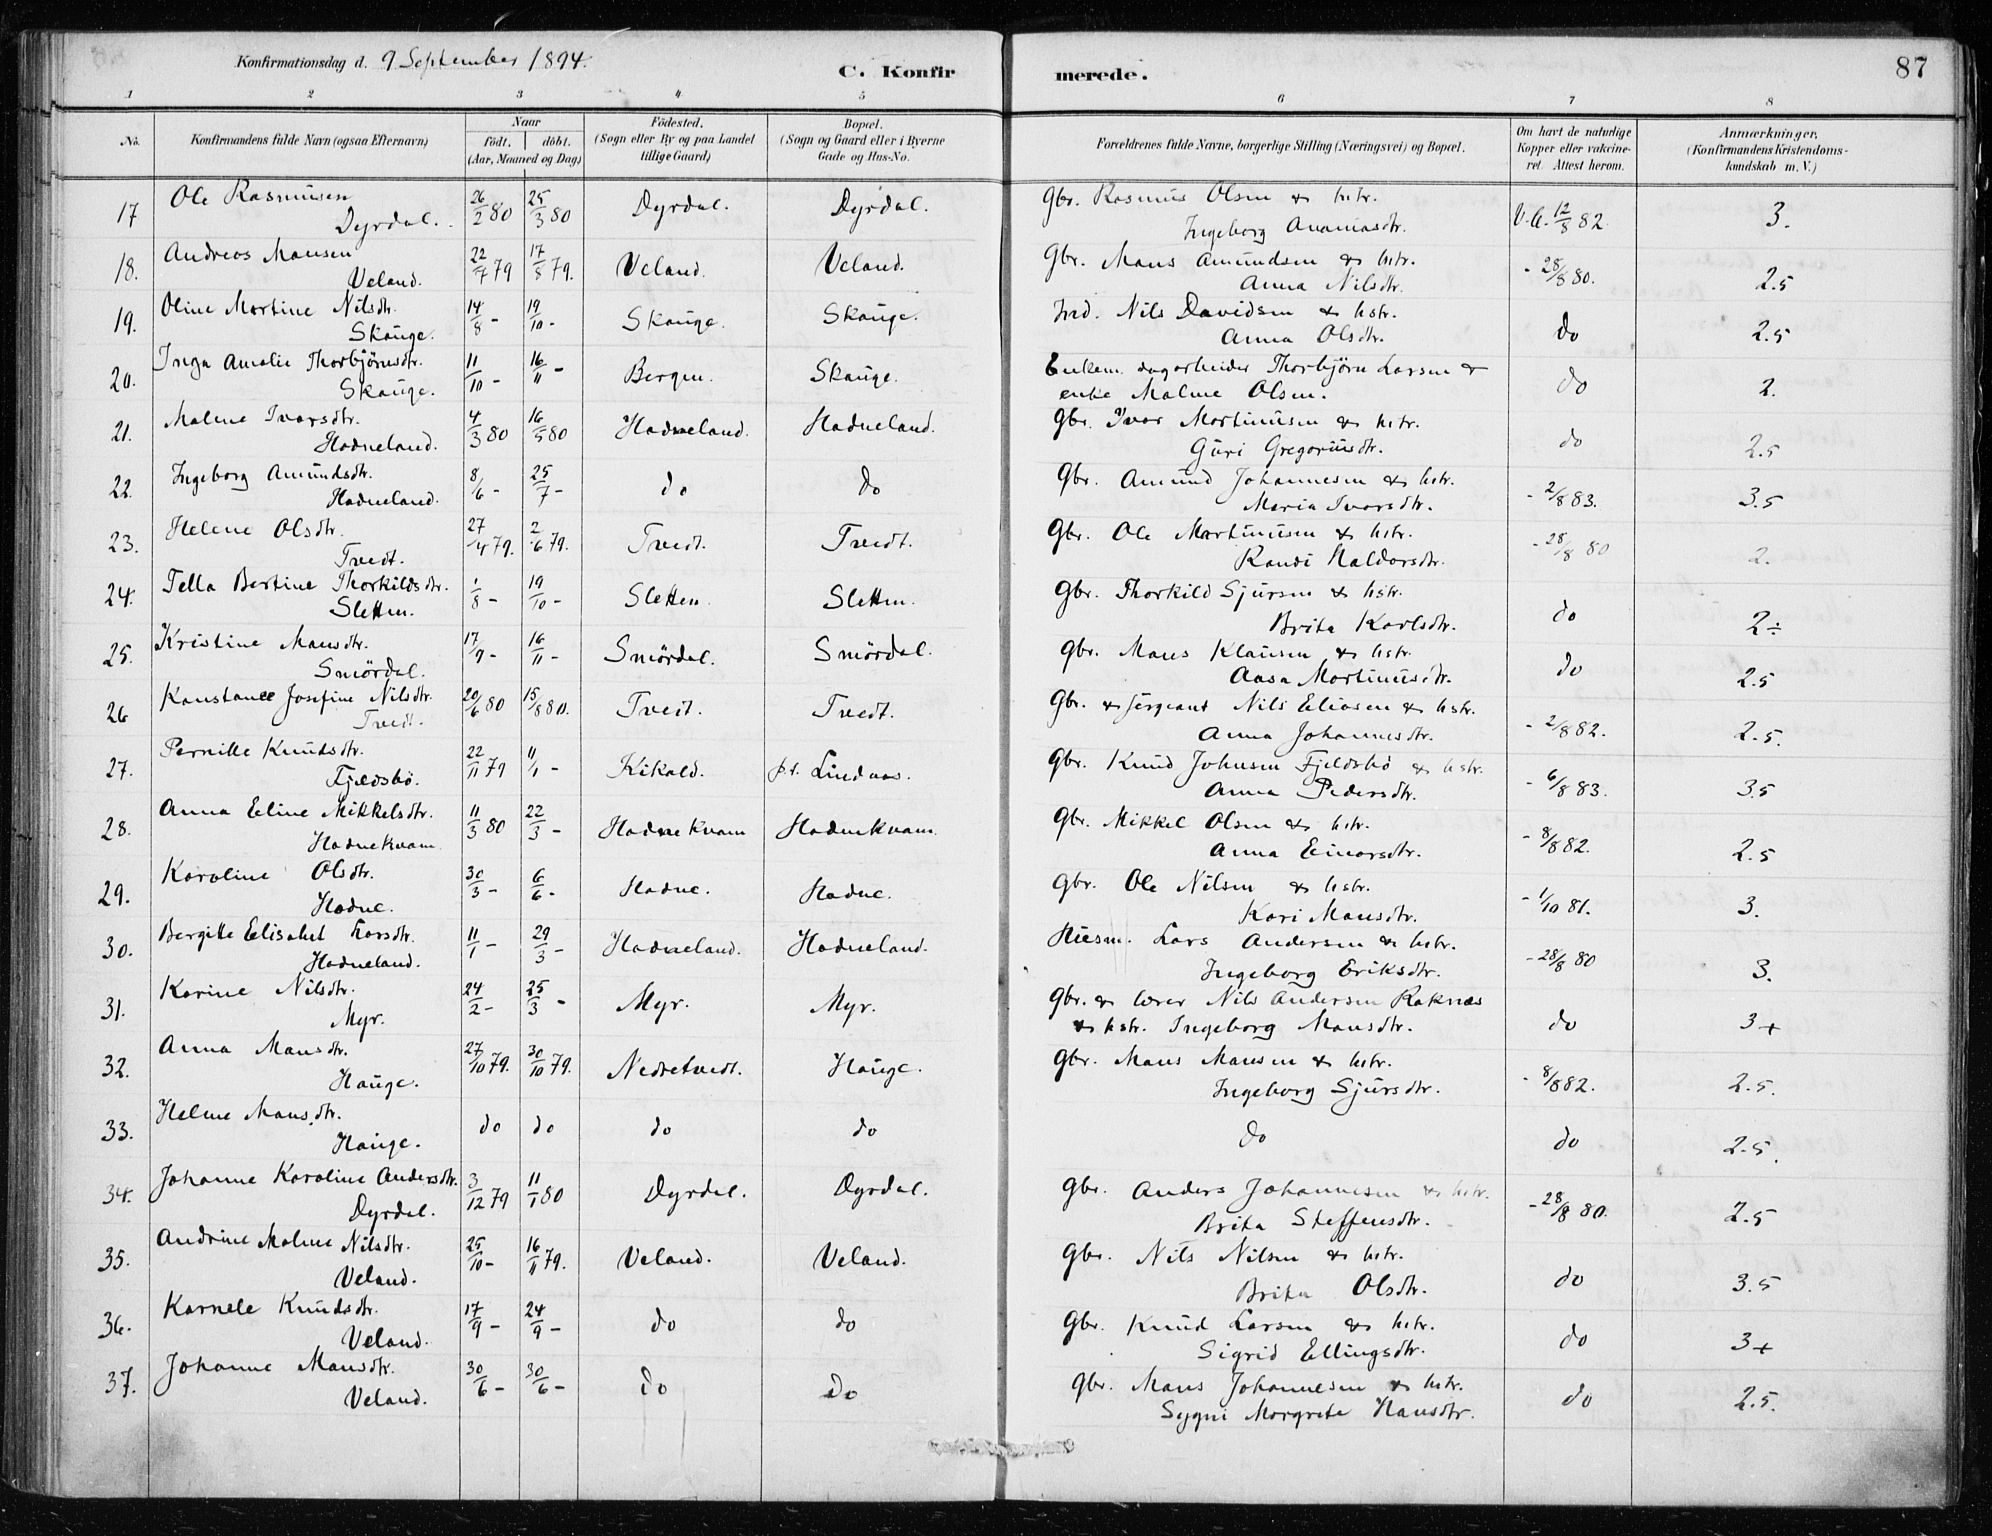 Konfirmationsdag d. 9 September 1894.
C. Konfirmerede.
87
1 2 3 4 5 6 7 8
No.
Konfirmandens fulde Navn (ogsaa Efternavn)
Naar
födt. döbt.
(Aar, Maaned og Dag)
Födested.
(Sogn eller By og paa Landet
tillige Gaard)
Bopæl.
(Sogn og Gaard eller i Byerne
Gade og Hus-No.
Forældrenes fulde Navne, borgerlige Stilling (Næringsvei) og Bopæl.
Om havt de naturlige
Kopper eller vakcine-
ret. Attest herom.
Anmærkninger.
(Konfirmandens Kristendoms-
kundskab m. V.)
17 Ole Rasmusen 26/2 80 25/3 80 Dyrdal. Dyrdal. Gbr. Rasmus Olsen & hstr. V.A. 12/8 82. 3.
Dyrdal. Ingeborg Ananiasdtr.
18. Andreas Mansen 22/7 79 17/8 79. Veland. Veland. Gbr. Mans Amundsen & hstr. - 28/8 80. 2.5
Veland. Anna Nilsdtr.
19. Oline Martine Nilsdtr. 14/8 - 19/10 - Skauge. Skauge. Ind. Nils Davidsen & hstr. do 2.5
Skauge. Anna Olsdtr.
20. Inga Amalie Thorbjörnsdtr. 11/10 - 16/11 - Bergen. Skauge. Enkem. dagarbeider Thorbjörn Larsen & do 2.
Skauge. enke Malene Olsen.
21. Malene Ivarsdtr. 4/3 80 16/5 80 Hadneland. Hadneland. Gbr. Ivar Martinusen & hstr. do 2.5
Hadneland. Guri Gregoriusdtr.
22. Ingeborg Amundsdtr. 8/6 - 25/7 - do do Gbr. Amund Johannesen & hstr. - 2/8 83. 3.5
Hadneland. Maria Ivarsdtr.
23. Helene Olsdtr. 27/4 79. 2/6 79. Tvedt. Tvedt. Gbr. Ole Martinusen & hstr. - 28/8 80 2.
Tvedt. Randi Haldorsdtr.
24. Tella Bertine Thorkildsdtr. 1/8 - 19/10 - Sletten. Sletten. Gbr. Thorkild Sjursen & hstr. do 2÷
Sletten. Brita Karlsdtr.
25. Kristine Mansdtr. 17/9 - 16/11 - Smördal. Smördal. Gbr. Mans Klausen & hstr. do 2.5
Smördal. Aasa Martinusdtr.
26 Konstance Josefine Nilsdtr. 20/6 80 15/8 80. Tvedt. Tvedt. Gbr. & sergeant Nils Eliasen & hstr. - 2/8 82. 2.5.
Tvedt. Anna Johannesdtr.
27. Pernille Knudsdtr. 22/11 79 11/1 - Kikald. p.t. Lindaas. Gbr. Knud Johnsen Fjeldsbö & hstr. - 6/8 83. 3.5
Fjeldsbö. Anna Pedersdtr.
28. Anna Eline Mikkelsdtr. 11/3 80 22/3 - Hadnekvam Hadnekvam. Gbr. Mikkel Olsen & hstr. - 8/8 82. 2.5
Hadnekvam. Anna Einarsdtr.
29. Karoline Olsdtr. 30/3 - 6/6 - Hadne. Hadne. Gbr. Ole Nilsen & hstr. - 1/10 81. 3.
Hadne. Kari Mansdtr.
30. Bergitte Elisabet Larsdtr. 11/1 - 29/3 - Hadneland. Hadneland. Husm. Lars Andersen & hstr. - 28/8 80 3.
Hadneland. Ingeborg Eriksdtr.
31. Karine Nilsdtr. 24/2 - 25/3 - Myr. Myr. Gbr. & lærer Nils Andersen Raknes do 3+
Myr. & hstr. Ingeborg Mansdtr.
32. Anna Mansdtr. 27/10 79. 30/10 79. Nedretvedt. Hauge. Gbr. Mans Mansen & hstr. - 8/8 82. 2.5.
Hauge. Ingeborg Sjursdtr.
33. Helene Mansdtr. do do do do do do 2.5.
Hauge.
34. Johanne Karoline Andersdtr. 3/12 79 11/1 80 Dyrdal. Dyrdal. Gbr. Anders Johannesen & hstr. - 28/8 80. 2.5
Dyrdal. Brita Steffensdtr.
35. Andrine Malene Nilsdtr. 25/10 - 16/11 79. Veland. Veland. Gbr. Nils Nilsen & hstr. do 3.5
Veland. Brita Olsdtr.
36. Karnele Knudsdtr. 17/9 - 24/9 - do do Gbr. Knud Larsen & hstr. do 3+
Veland. Sigrid Ellingsdtr.
37. Johanne Mansdtr. 30/6 - 30/6 - do do Gbr. Mans Johannesen & hstr. do 2.5.
Veland. Sygni Margrete Hansdtr.